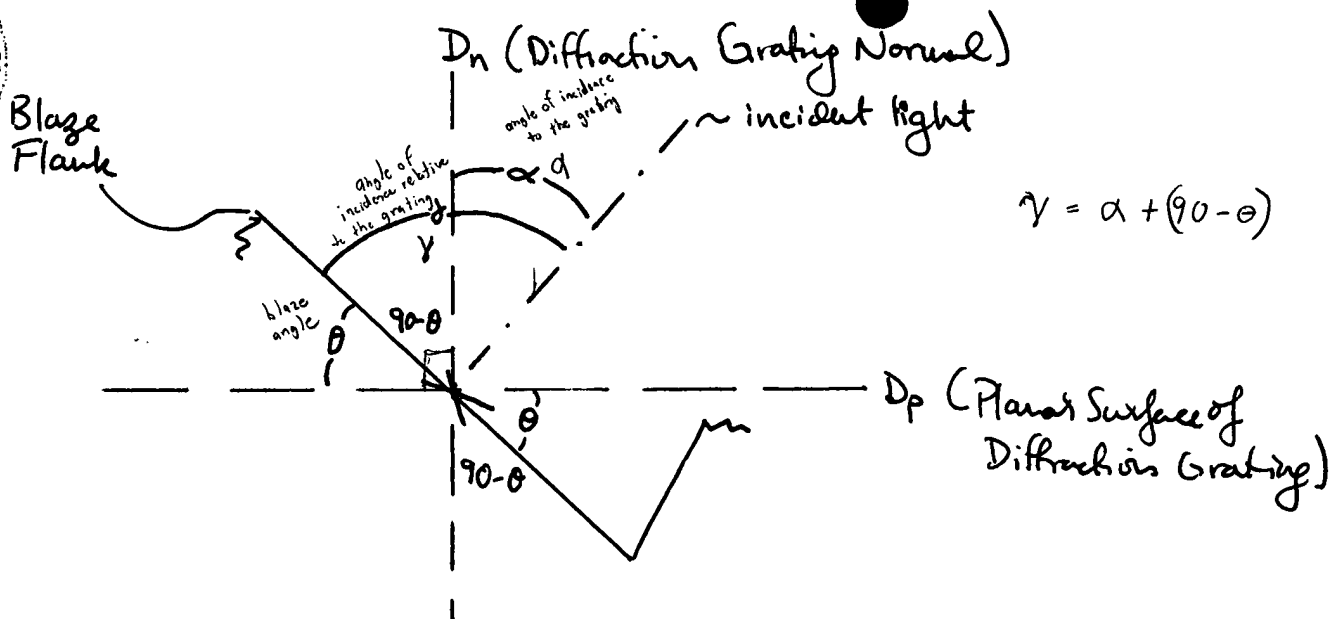 Dn (Diffraction Grating Normal)
angle of incidence
to the grating
~ incident light
Blaze
Flank
angle of
incidence relative
to the grating
α
γ
γ = α + (90-θ)
blaze
angle
θ
90-θ
Dp (Planar Surface of
Diffraction Grating)
θ
90-θ